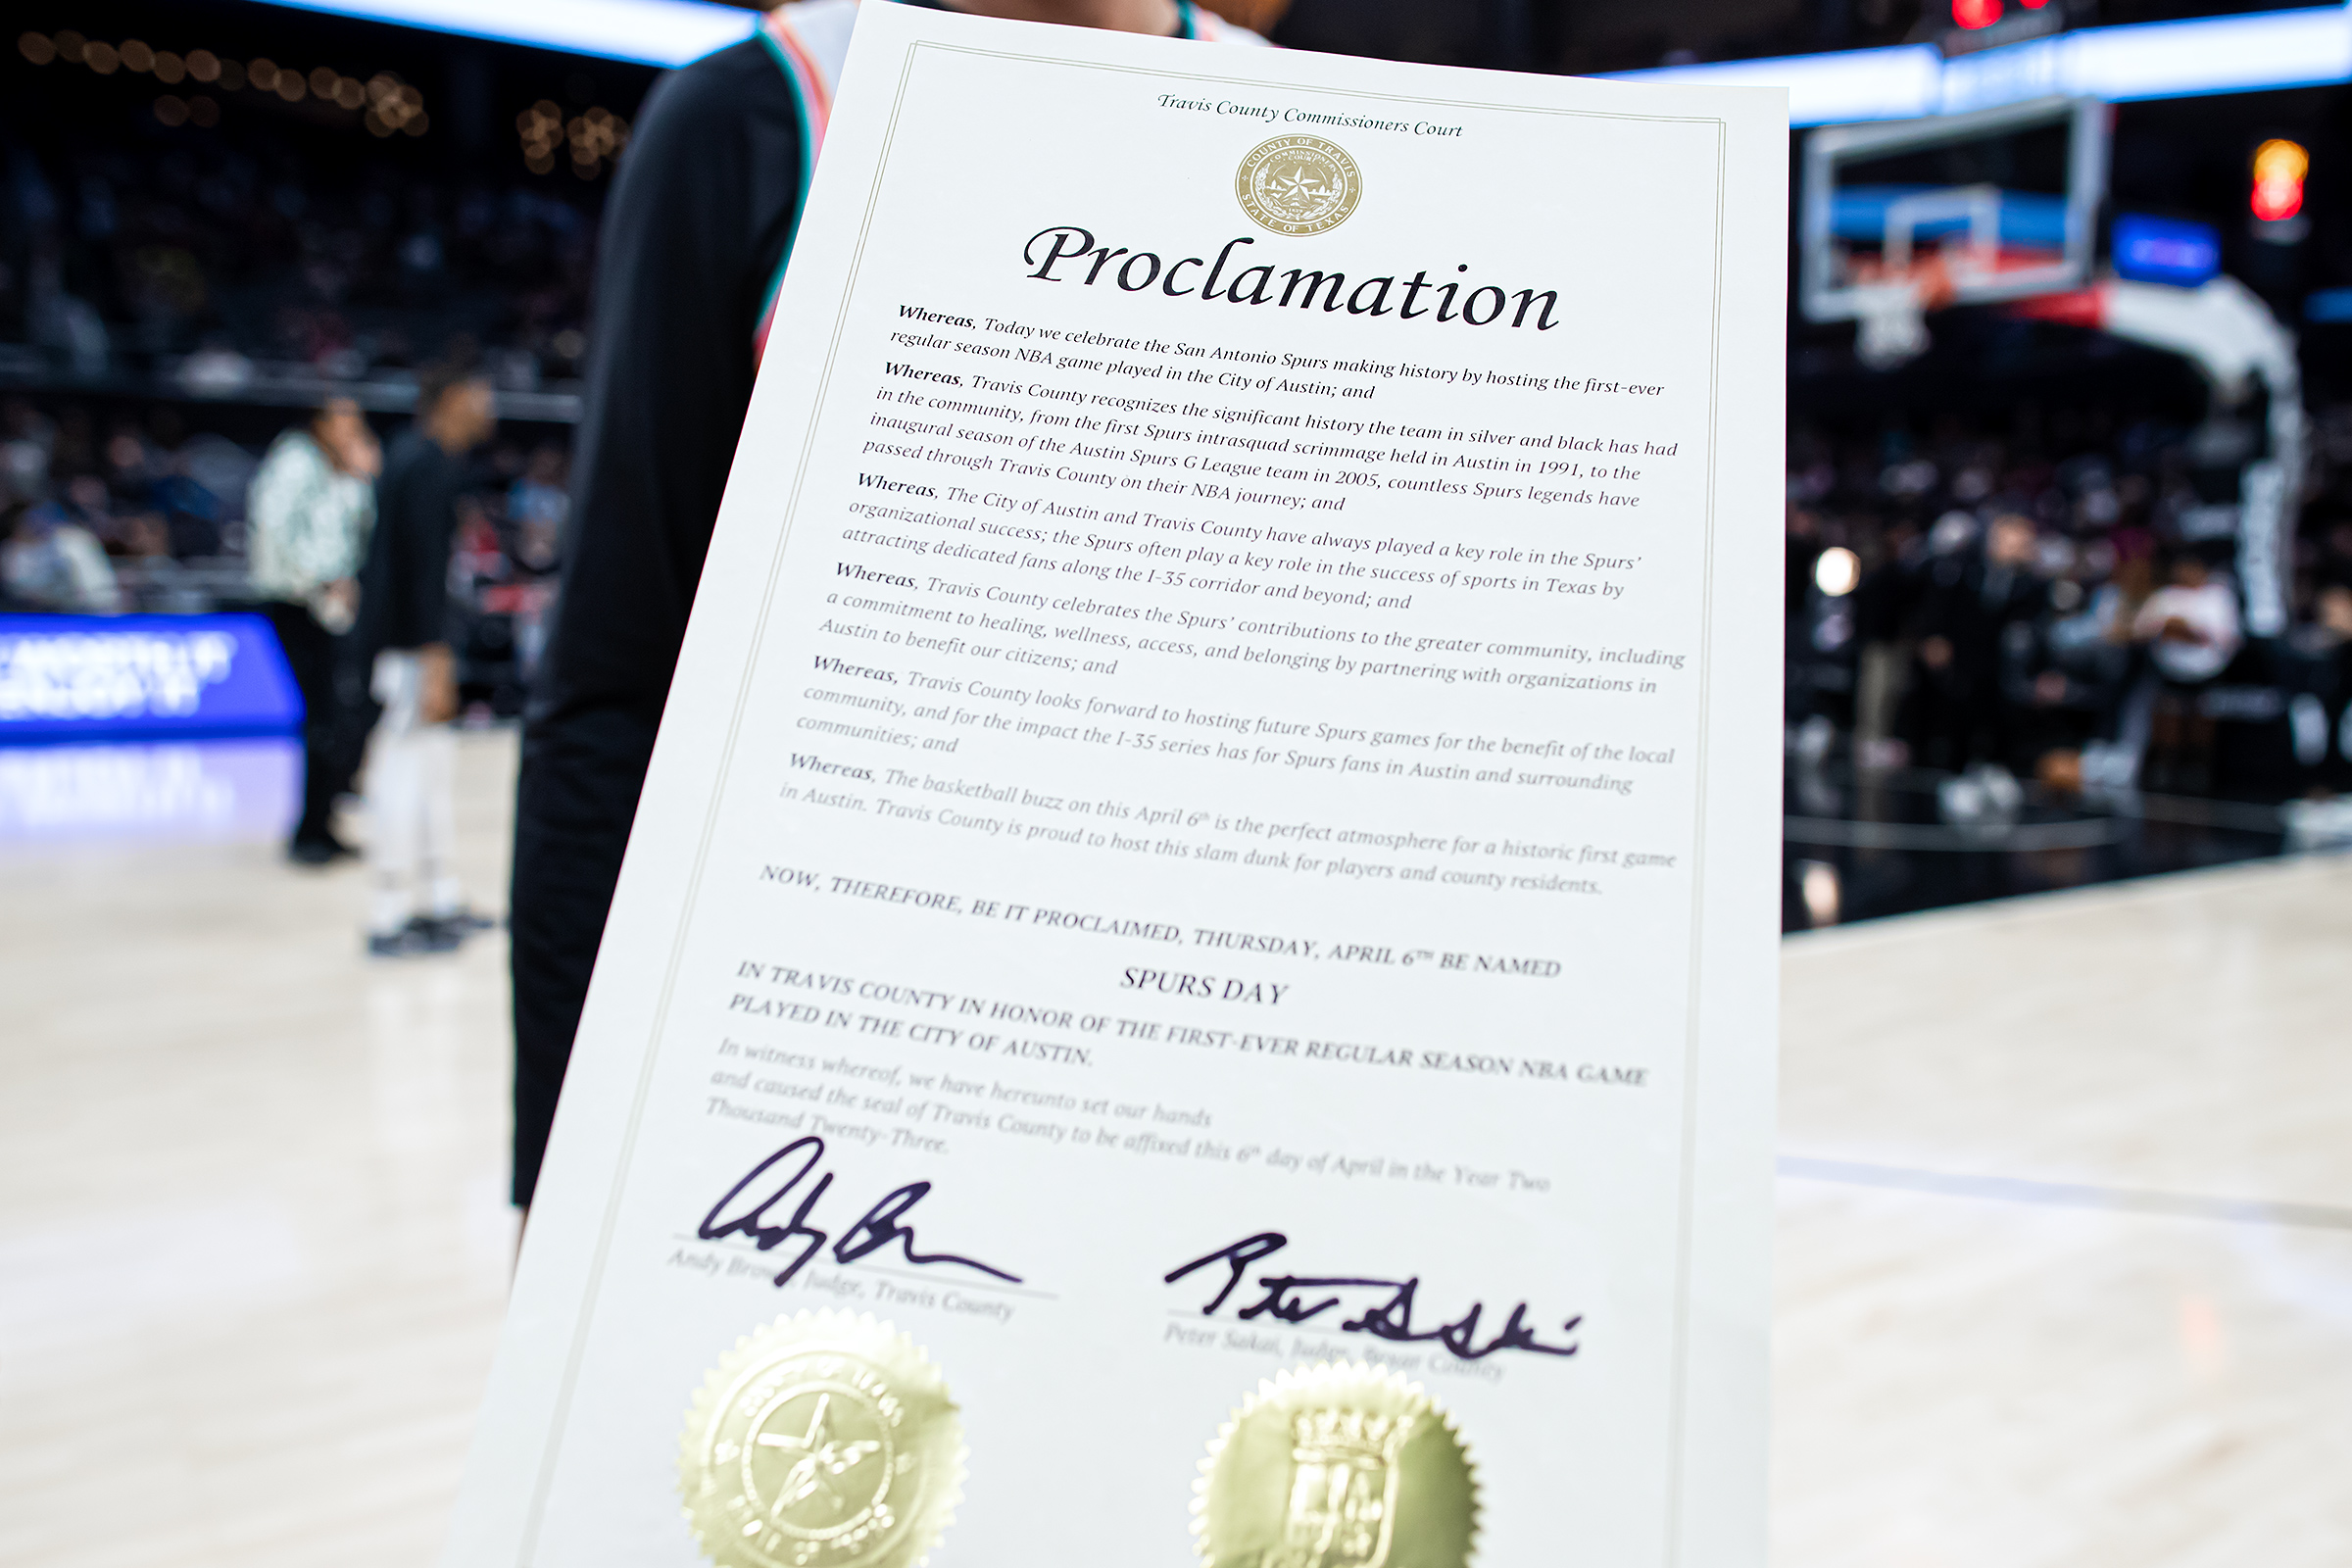 Travis County Commissioners Court
COUNTY OF TRAVIS
COMMISSIONERS
COURT
STATE OF TEXAS
Proclamation
Whereas, Today we celebrate the San Antonio Spurs making history by hosting the first-ever
regular season NBA game played in the City of Austin; and
Whereas, Travis County recognizes the significant history the team in silver and black has had
in the community, from the first Spurs intrasquad scrimmage held in Austin in 1991, to the
inaugural season of the Austin Spurs G League team in 2005, countless Spurs legends have
passed through Travis County on their NBA journey; and
Whereas, The City of Austin and Travis County have always played a key role in the Spurs'
organizational success; the Spurs often play a key role in the success of sports in Texas by
attracting dedicated fans along the I-35 corridor and beyond; and
Whereas, Travis County celebrates the Spurs' contributions to the greater community, including
a commitment to healing, wellness, access, and belonging by partnering with organizations in
Austin to benefit our citizens; and
Whereas, Travis County looks forward to hosting future Spurs games for the benefit of the local
community, and for the impact the I-35 series has for Spurs fans in Austin and surrounding
communities; and
Whereas, The basketball buzz on this April 6th is the perfect atmosphere for a historic first game
in Austin. Travis County is proud to host this slam dunk for players and county residents.
NOW, THEREFORE, BE IT PROCLAIMED, THURSDAY, APRIL 6TH BE NAMED
SPURS DAY
IN TRAVIS COUNTY IN HONOR OF THE FIRST-EVER REGULAR SEASON NBA GAME
PLAYED IN THE CITY OF AUSTIN.
In witness whereof, we have hereunto set our hands
and caused the seal of Travis County to be affixed this 6th day of April in the Year Two
Thousand Twenty-Three.
Andy Brown, Judge, Travis County
Peter Sakai, Judge, Bexar County